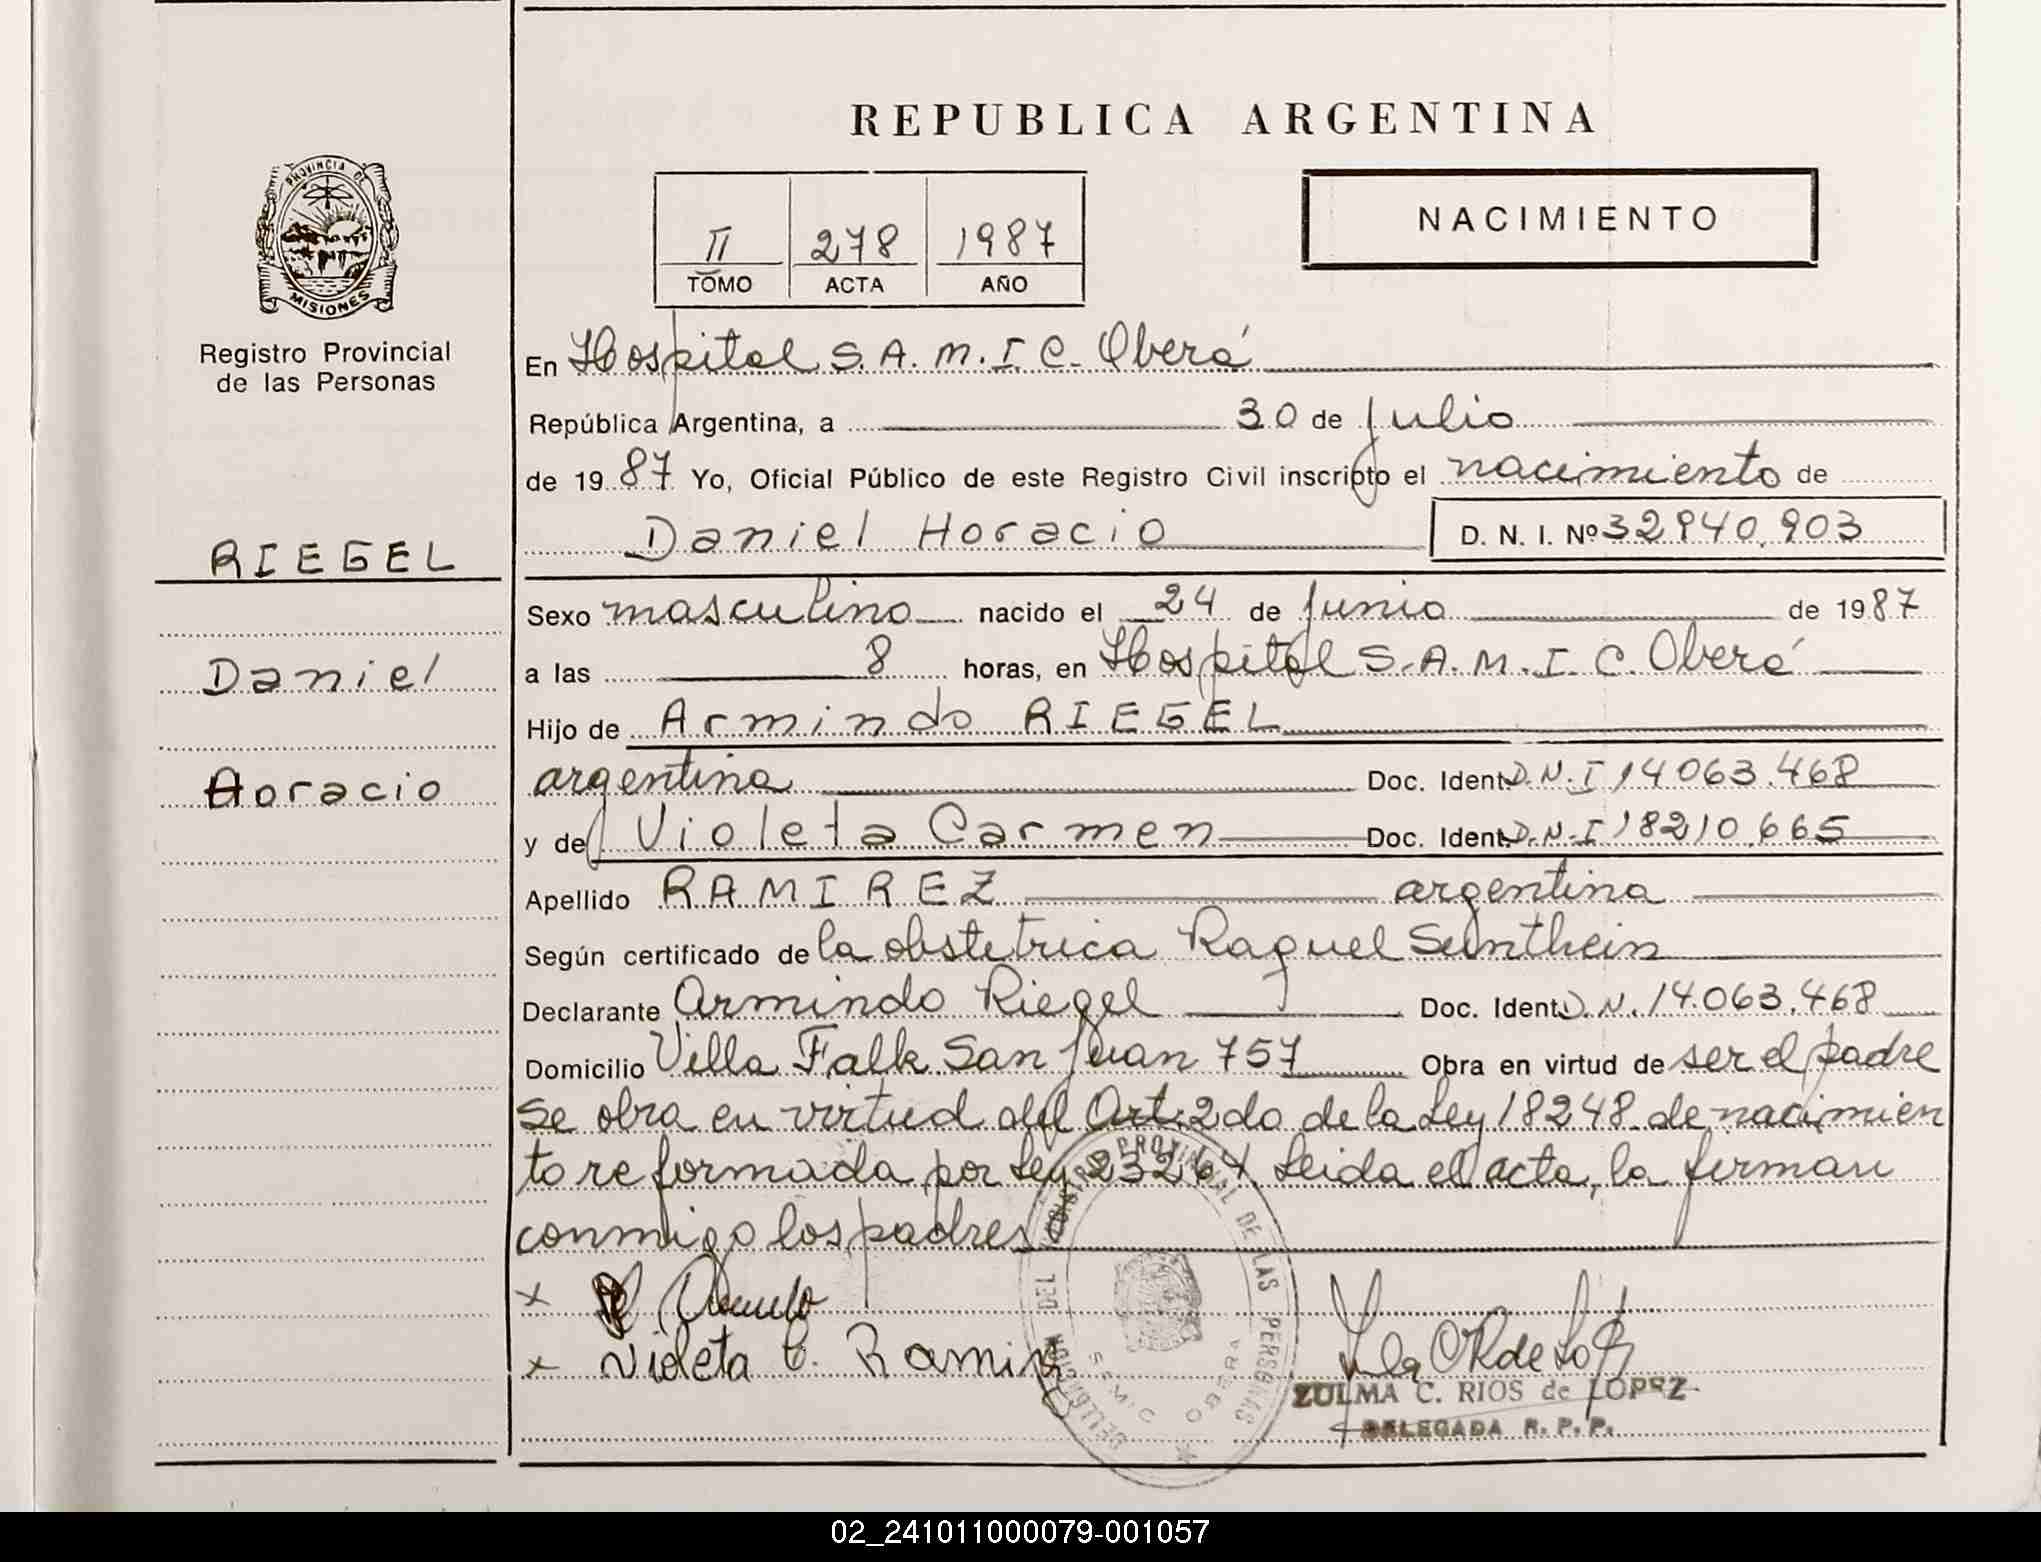 REPUBLICA ARGENTINA
PROVINCIA DE
MISIONES
Registro Provincial
de las Personas
RIEGEL
Daniel
Horacio
II 278 1987
TOMO ACTA AÑO
NACIMIENTO
En Hospital S.A.M.I.C. Oberá
República Argentina, a 30 de Julio
de 1987 Yo, Oficial Público de este Registro Civil inscripto el nacimiento de
Daniel Horacio D. N. I. Nº 32940.903
Sexo masculino nacido el 24 de Junio de 1987
a las 8 horas, en Hospital S.A.M.I.C. Oberá
Hijo de Armindo RIEGEL
argentina Doc. Ident. D.N.I 14063.468
y de Violeta Carmen Doc. Ident. D.N.I 18210.665
Apellido RAMIREZ argentina
Según certificado de la obstetrica Raquel Sunthein
Declarante Armindo Riegel Doc. Ident. D.N. 14.063.468
Domicilio Villa Falk San Juan 757 Obra en virtud de ser el padre
se obra en virtud del Art. 2do de la Ley 18248 de nacimien
to reformada por Ley 23264 Leida el acta, la firman
conmigo los padres
x
x Violeta C. Ramirez
DELEGACION DEL REGISTRO PROVINCIAL DE LAS PERSONAS
OBERA
ZULMA C. RIOS de LOPEZ
DELEGADA R. P. P.
02_241011000079-001057